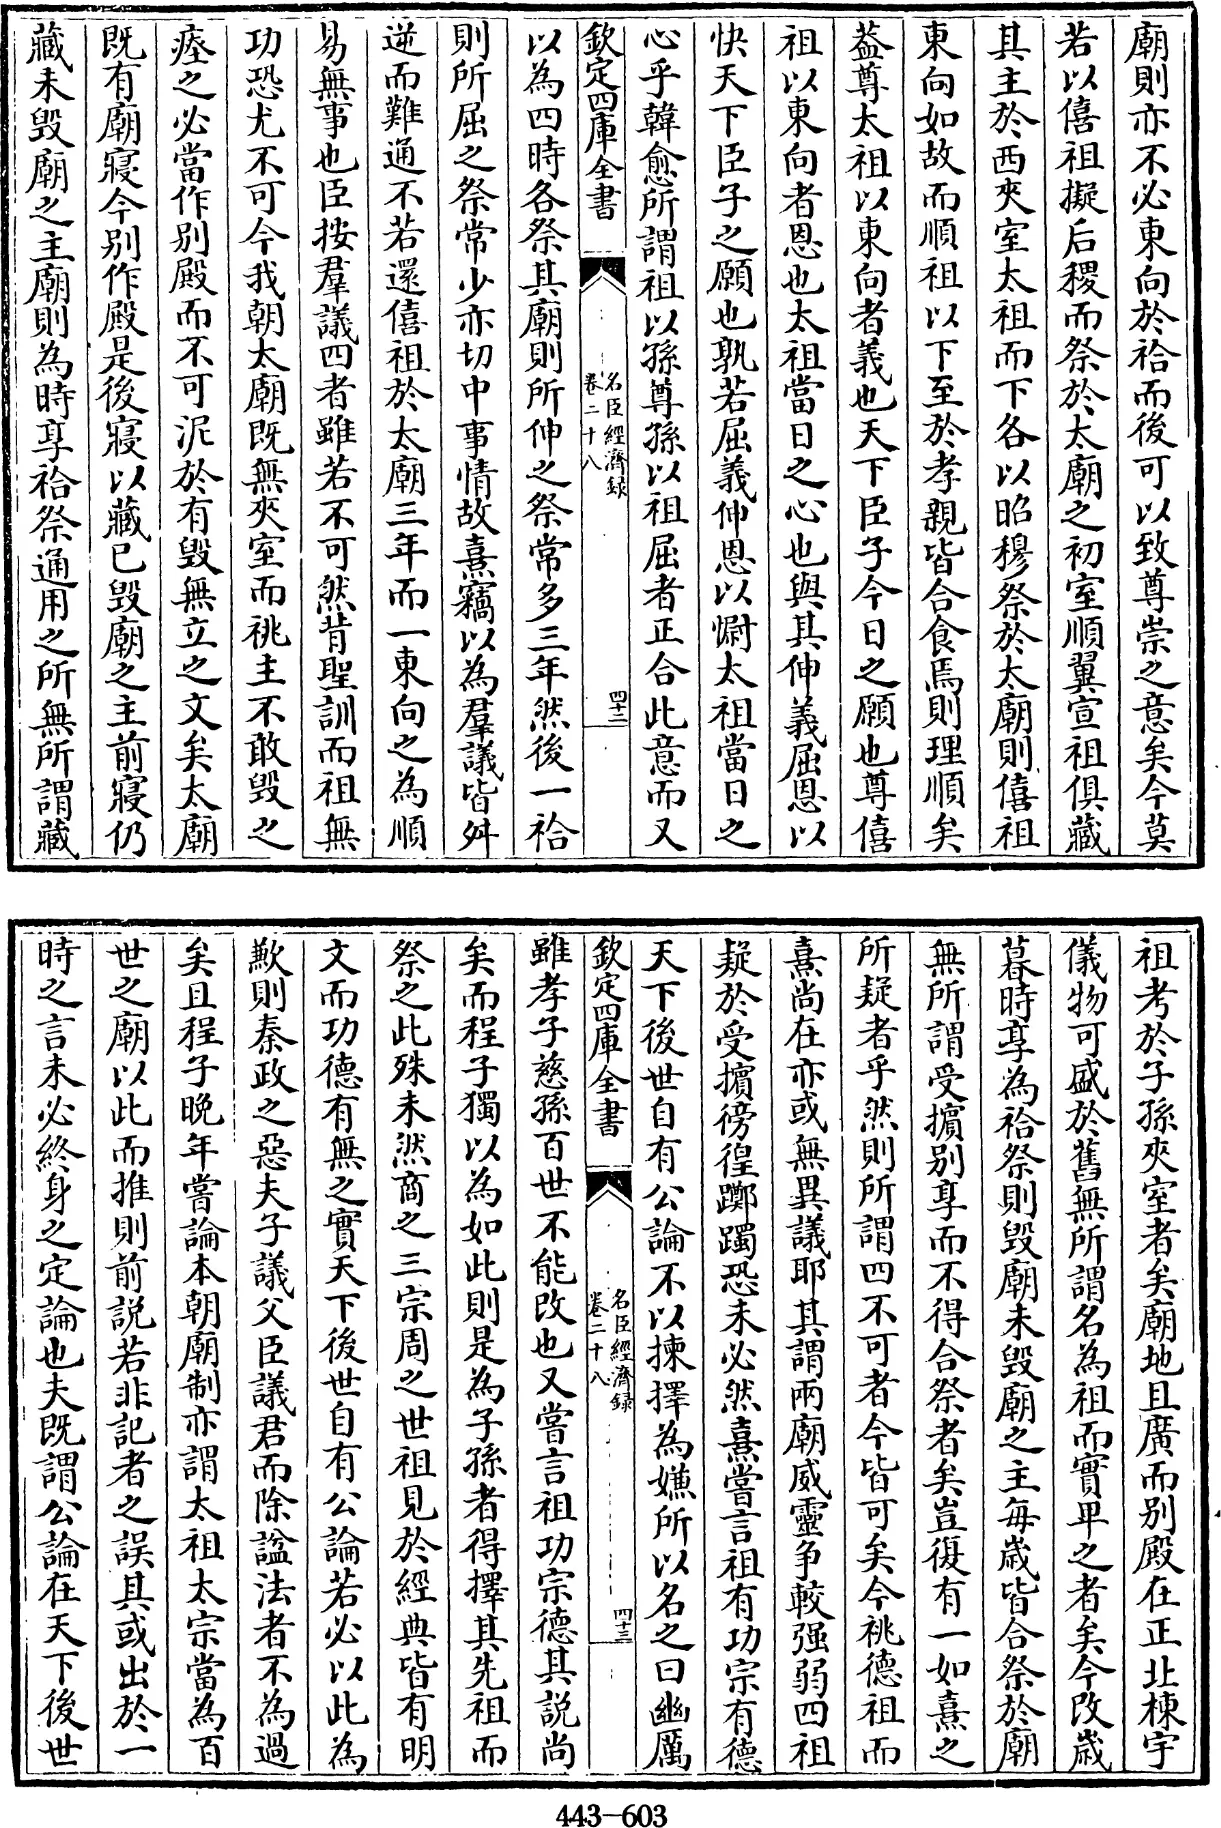 廟則亦不必東向於祫而後可以致尊崇之意矣今莫
若以僖祖擬后稷而祭於太廟之初室順翼宣祖俱藏
其主於西夾室太祖而下各以昭穆祭於太廟則僖祖
東向如故而順祖以下至於孝親皆合食焉則理順矣
葢尊太祖以東向者義也天下臣子今日之願也尊僖
祖以東向者恩也太祖當日之心也與其伸義屈恩以
快天下臣子之願也孰若屈義伸恩以慰太祖當日之
心乎韓愈所謂祖以孫尊孫以祖屈者正合此意而又
欽定四庫全書
名臣經濟録
卷二十八
四十二
以為四時各祭其廟則所伸之祭常多三年然後一祫
則所屈之祭常少亦切中事情故熹竊以為羣議皆舛
逆而難通不若還僖祖於太廟三年而一東向之為順
易無事也臣按羣議四者雖若不可然背聖訓而祖無
功恐尤不可今我朝太廟既無夾室而祧主不敢毁之
瘞之必當作别殿而不可泥於有毁無立之文矣太廟
既有廟寢今别作殿是後寢以藏已毁廟之主前寢仍
藏未毁廟之主廟則為時享祫祭通用之所無所謂藏
祖考於子孫夾室者矣廟地且廣而别殿在正北棟宇
儀物可盛於舊無所謂名為祖而實卑之者矣今改歲
暮時享為祫祭則毁廟未毁廟之主每歲皆合祭於廟
無所謂受擯别享而不得合祭者矣豈復有一如熹之
所疑者乎然則所謂四不可者今皆可矣今祧德祖而
熹尚在亦或無異議耶其謂兩廟威靈争較强弱四祖
疑於受擯徬徨躑躅恐未必然熹嘗言祖有功宗有德
天下後世自有公論不以揀擇為嫌所以名之曰幽厲
欽定四庫全書
名臣經濟録
卷二十八
四十三
雖孝子慈孫百世不能改也又嘗言祖功宗德其説尚
矣而程子獨以為如此則是為子孫者得擇其先祖而
祭之此殊未然商之三宗周之世祖見於經典皆有明
文而功德有無之實天下後世自有公論若必以此為
歉則秦政之惡夫子議父臣議君而除諡法者不為過
矣且程子晩年嘗論本朝廟制亦謂太祖太宗當為百
世之廟以此而推則前説若非記者之誤其或出於一
時之言未必終身之定論也夫既謂公論在天下後世
443-603